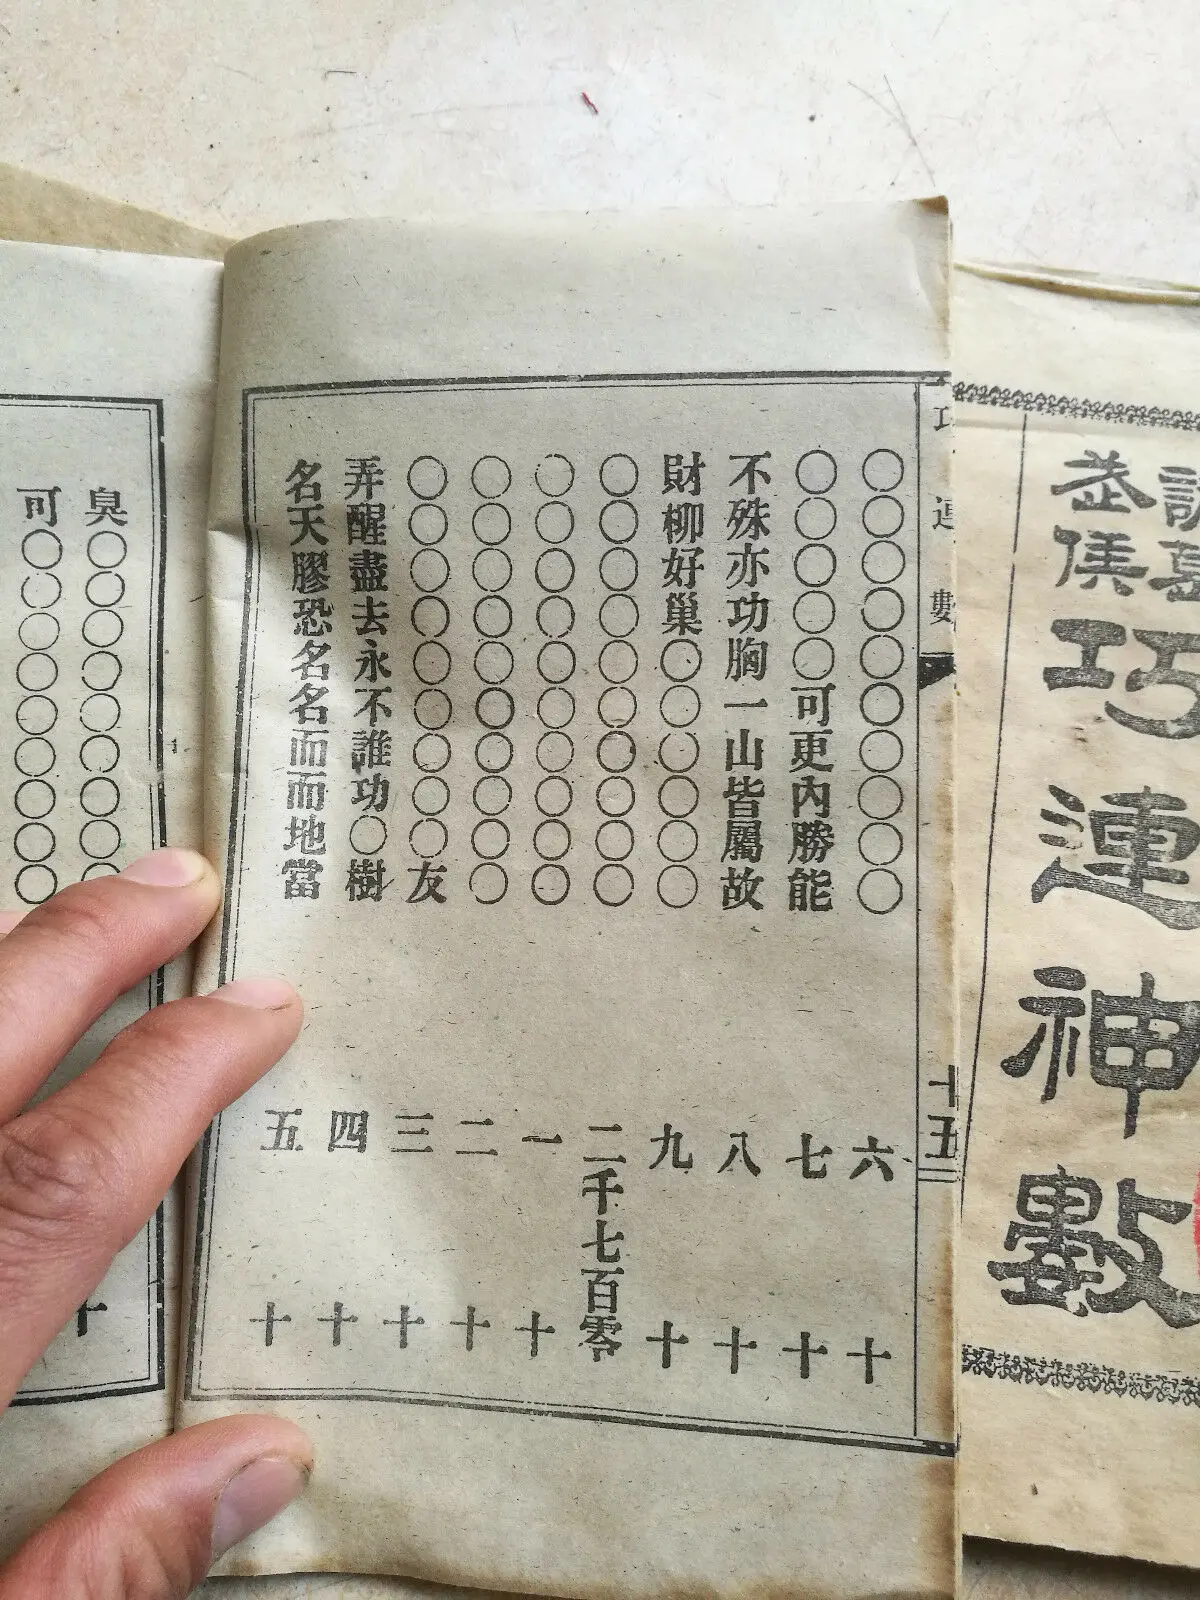 諸葛
武侯
巧連神數
巧連數 十五
○○○○○○○○○○ 六十
○○○○○可更內勝能 七十
不殊亦功胸一山皆屬故 八十
財柳好巢○○○○○○ 九十
○○○○○○○○○○ 二千七百零
○○○○○○○○○○ 一十
○○○○○○○○○○ 二十
○○○○○○○○○友 三十
弄醒盡去永不誰功○樹 四十
名天膠恐名名而而地當 五十
臭○○○○○○○○○ 十
可○○○○○○○○○